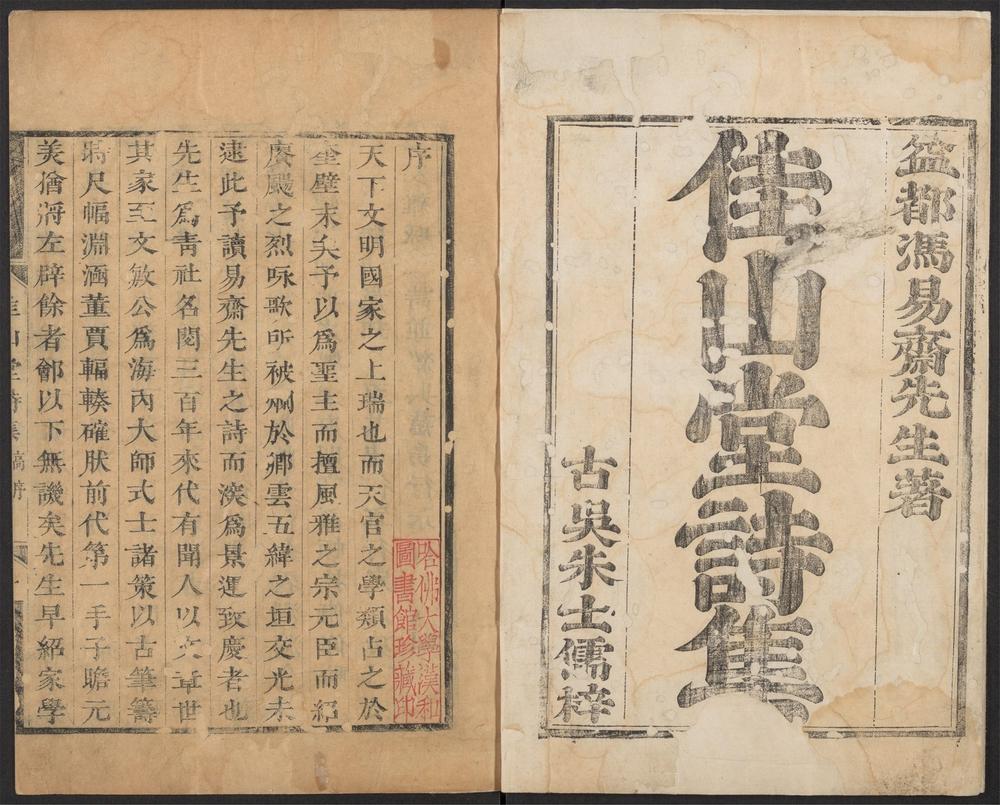 益都馮易齋先生著
佳山堂詩集
古吳朱士儒梓
序
天下文明國家之上瑞也而天官之學類占之於
奎壁末矣予以爲聖主而擅風雅之宗元臣而紹
賡颺之烈咏歌所被炳於卿雲五緯之垣交光未
逮此予讀易齋先生之詩而深爲景運致慶者也
先生爲青社名閥三百年來代有聞人以文章世
其家至文敏公爲海內大師式士諸策以古筆籌
時尺幅淵涵董賈輻輳確肰前代第一手子瞻元
美猶將左辟餘者鄶以下無譏矣先生早紹家學
哈佛大學漢和
圖書館珍藏印
佳山堂詩集